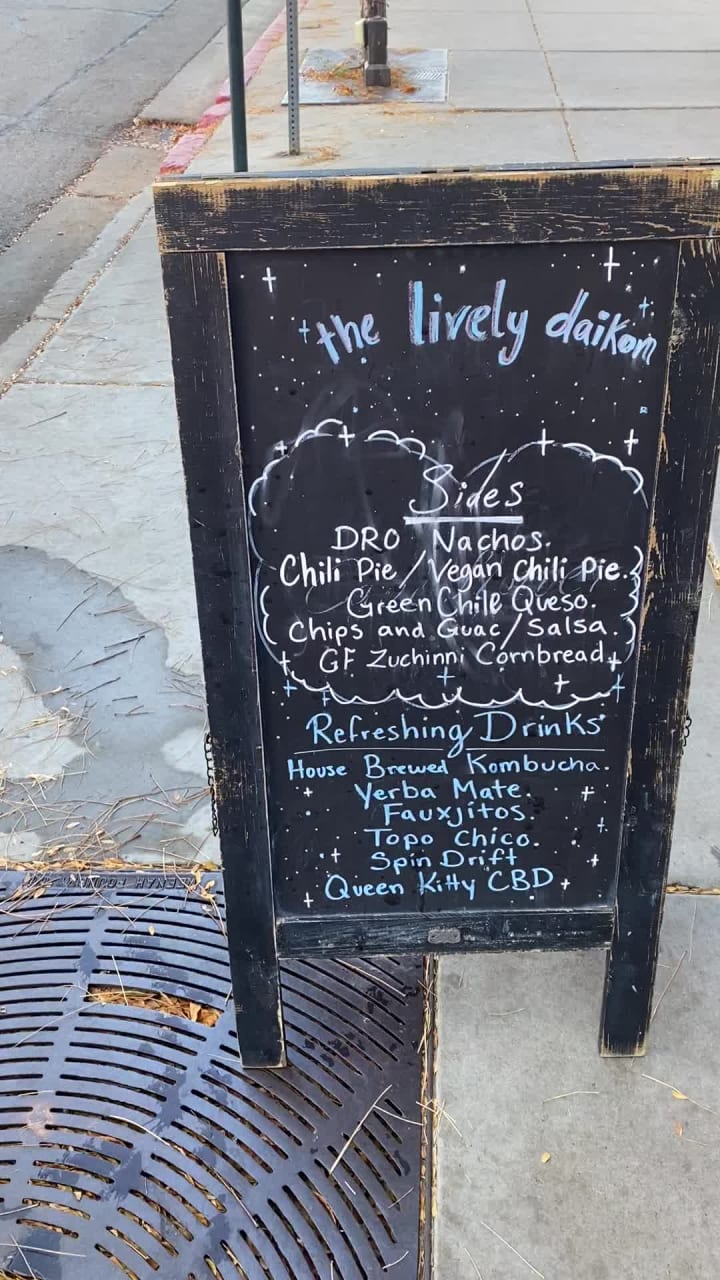 the lively daikon
Sides
DRO Nachos.
Chili Pie/Vegan Chili Pie.
Green Chile Queso.
Chips and Guac/Salsa.
GF Zuchinni Cornbread
Refreshing Drinks
House Brewed Kombucha.
Yerba Mate.
Fauxjitos.
Topo Chico.
Spin Drift
Queen Kitty CBD